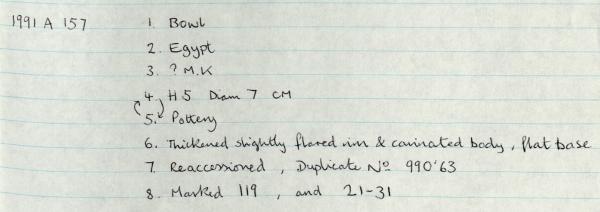 1991 A 157 1. Bowl
2. Egypt
3. ? M.K
4. H 5 Diam 7 CM
5. Pottery
6. Thickened slightly flared rim & carinated body, flat base
7. Reaccessioned, Duplicate Nº 990'63
8. Marked 119, and 21-31